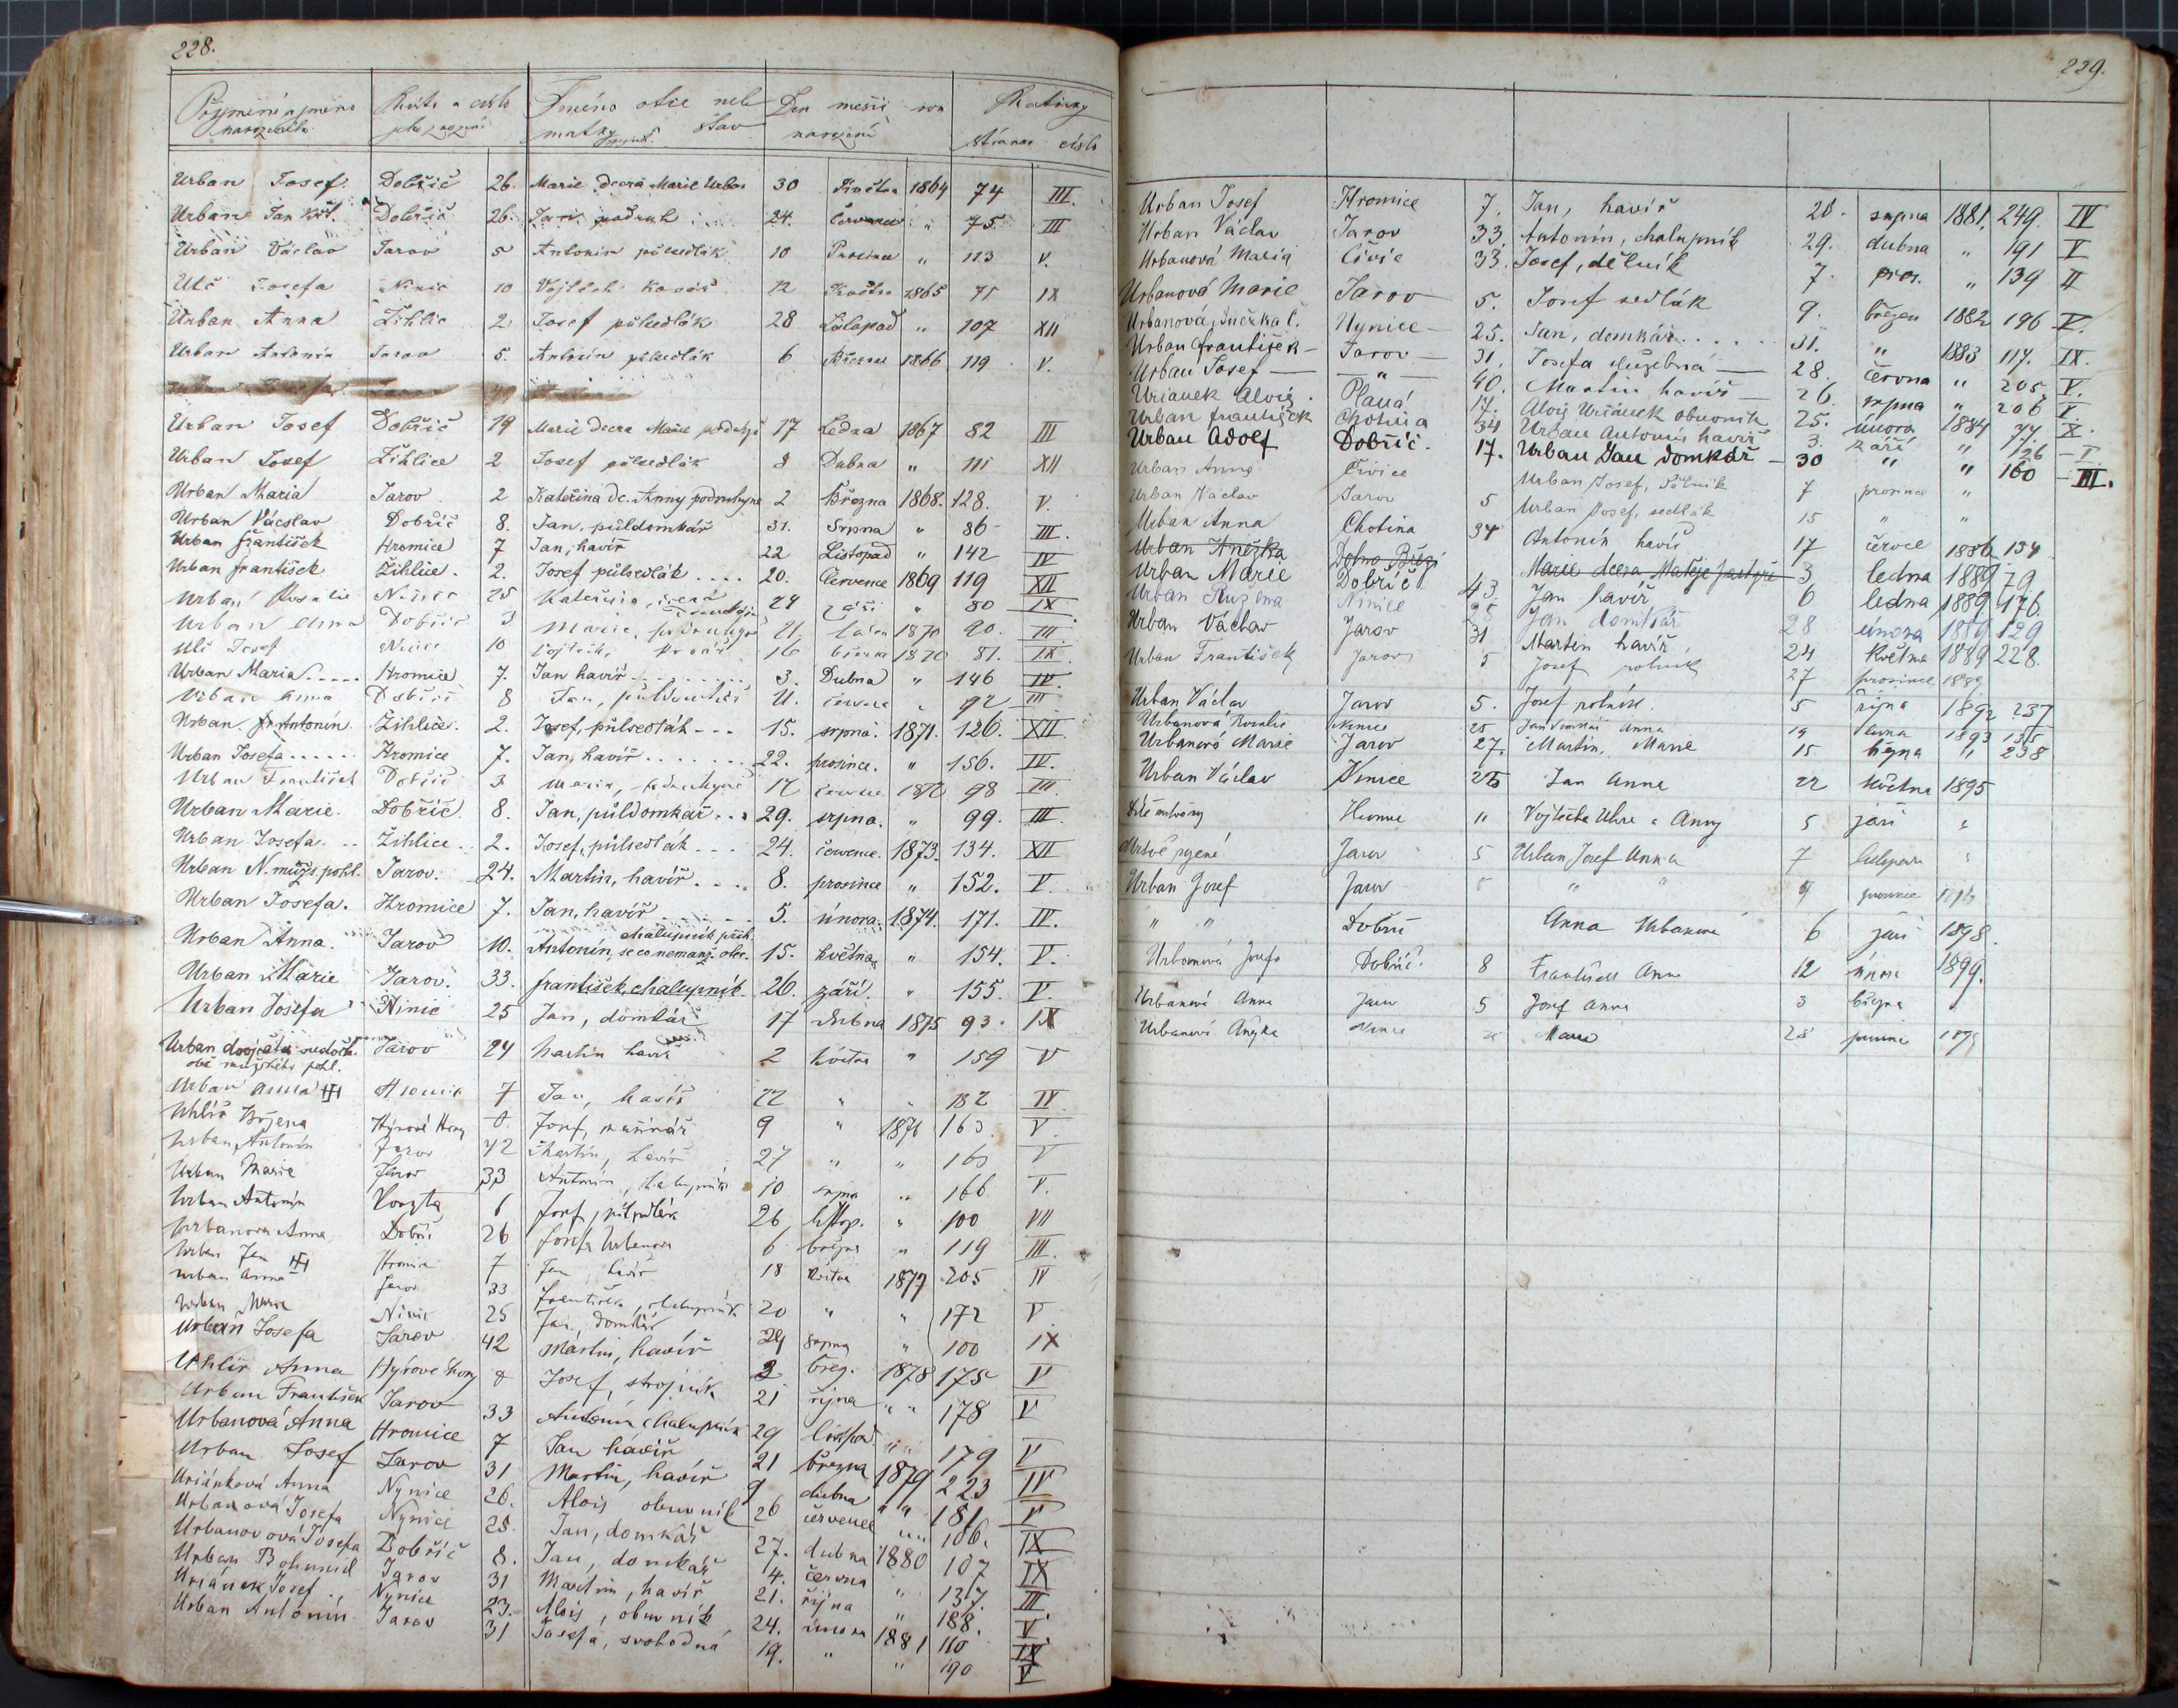 228.
Přijmení a jméno narozeného Místo a číslo Jméno otce neb matky stav Den měsíc rok narození Matriky stránka číslo
Urban Josef Dobřič 26. Marie dcera Marie Urban 30 Května 1864 74 III.
Urban Jan Dobřič 26. Jan podruh 24. Července " 75 III
Urban Václav Jarov 5 Antonín půlsedlák 10 Prosince " 113 V.
Ulč Josefa Ninic 10 Vojtěch Kovář 12 Května 1865 71 IX
Urban Anna Žihlic 2 Josef půlsedlák 28 Listopad " 107 XII
Urban Antonín Jarov 5. Antonín půlsedlák 6 Března 1866 119 V.
Urban Josef Dobřič 19 Marie dcera Marie 17 Ledna 1867 82 III
Urban Josef Žihlice 2 Josef půlsedlák 8 Dubna " 111 XII
Urban Maria Jarov 2 Kateřina dc. Anny podruhyně 2 Března 1868. 128. V.
Urban Václav Dobřič 8. Jan, půldomkář 31. Srpna " 86 III.
Urban František Hromice 7 Jan, havíř 22 Listopad " 142 IV
Urban František Žihlice. 2. Josef půlsedlák .... 20. Července 1869 119 XII
Urban Rosalie Ninic 25 Kateřina, 24 září " 80 IX
Urban Anna Dobřič 3 Marie, podruhyně 21. 1870 90. III
Ulč Josef Ninic 10 Vojtěch, Kovář 16 Března 1870 81. IX
Urban Maria..... Hromice 7. Jan havíř ........ 3. Dubna " 146 IV.
Urban Anna Dobřič 8 Jan, půldomkář 21. června " 92 III
Urban Antonín Žihlice. 2. Josef, půlsedlák --- 15. srpna. 1871. 126. XII
Urban Josefa...... Hromice 7. Jan, havíř ....... 22. prosince. " 156. IV.
Urban František Dobřič 3 Maria, podruhyně 17 1872 98 III.
Urban Marie. Dobřič. 8. Jan, půldomkář... 29. srpna. " 99. III.
Urban Josefa. .. Žihlice.. 2. Josef, půlsedlák --- 24. července. 1873. 134. XII
Urban N. mužs. pohl. Jarov. 24. Martin, havíř.... 8. prosince " 152. V.
Urban Josefa. Hromice 7. Jan, havíř ....... 5. února. 1874. 171. IV.
Urban Anna. Jarov 10. Antonín, chalupník 15. května " 154. V.
Urban Marie Jarov. 33. František, chalupník. 26. září. " 155. V.
Urban Josefa Ninic 25 Jan, domkář 17 dubna 1875 93. IX
Urban dvojčata nedoch. obě mužského pohl. Jarov 24 Martin havíř 2 května " 159 V
Urban Anna Hromic 7 Jan, havíř 22 " " 182 IV
Uhlíř Božena Hýrové Hory 8 Josef, 9 " 1876 163. V.
Urban Antonín Jarov 42 Martin, havíř 27 " " 165 V
Urban Marie Jarov 33 Antonín, chalupník 10 srpna " 166 V.
Urban Antonín 6 Josef, půlsedlák 26 listop. " 100 VII
Urbanova Anna Dobřič 26 Josefa Urbanova 6 března " 119 III.
Urban Jan Hromic 7 Jan havíř 18 května 1877 205 IV
Urban Anna Jarov 33 František, chalupník 20 " " 172 V
Urban Marie Ninic 25 Jan, domkář 29 srpna " 100 IX
Urban Josefa Jarov 42 Martin, havíř 3 břez. 1878 175 V
Uhlíř Anna Hýrove Hory 8 Josef, strojník 21 října " " 178 V
Urban František Jarov 33 Antonín chalupník 29 listopad. " " 179 V
Urbanová Anna Hromice 7 Jan havíř 21 března 1879 223 IV
Urban Josef Jarov 31 Martin, havíř 9 dubna " " 181 V
Uriánková Anna Nynice 26. Alois obuvník 26 července " " 106. IX
Urbanová Josefa Nynice 25. Jan, domkář 27. dubna 1880 107 IX
Urbanová Josefa Dobříč 8. Jan, domkář 4. června " 137. III
Urban Bohumil Jarov 31 Martin, havíř 21. října " 188. V.
Uriánek Josef Nynice 23. Alois, obuvník 24. února 1881 110 IX
Urban Antonín Jarov 31 Josefa, svobodná 19. " " 190 V
229.
Urban Josef Hromice 7. Jan, havíř 20. srpna 1881. 249. IV
Urban Václav Jarov 33. Antonín, chalupník 29. dubna " 191 V
Urbanová Maria Čivic 33. Josef, dělník 7. pros. " 139 II
Urbanová Marie Jarov 5. Josef sedlák 9. březen 1882 196 V.
Urbanová Anežka Nynice 25. Jan, domkář..... 31. " 1883 117. IX.
Urban František Jarov 31. Josefa služebná 28. června " 205. V.
Urban Josef " 40. Martin havíř 26. srpna " 206 V.
Uriánek Alois Planá 17. Alois Uriánek obuvník 25. února 1884 77. X.
Urban František Chotina 34 Urban Antonín havíř 3. září " 126 I
Urban Adolf Dobříč. 17. Urban Jan domkář 30 " " 160 III.
Urban Anna Čivice Urban Josef, dělník 7 prosince "
Urban Václav Jarov 5 Urban Josef, sedlák 15 " "
Urban Anna Chotina 34 Antonín havíř 17 červce 1886 134
Urban Anežka Dolno Bříz. Marie dcera Matěje pastýře 3 ledna 1889 79
Urban Marie Dobříč 43. Jan havíř 6 ledna 1889 176.
Urban Ružena Ninice 25 Jan domkář 28 února 1889 129
Urban Václav Jarov 31 Martin havíř 24 května 1889 228.
Urban František Jarov 5 Josef rolník 27 prosince 1889
Urban Václav Jarov 5. Josef rolník. 5 října 1892 237
Urbanová Rosalie Nynice 25 Jan domkář Anna 19 1893 135
Urbanová Marie Jarov 27. Martin, Marie 15 " 238
Urban Václav Ninice 25 Jan Anna 22 května 1895
Vojtěcha Anny 5 září "
Mrtvě zrozené Jarov 5 Urban Josef Anna 7 listopadu "
Urban Josef Jarov 5 " " 9 prosince 1896
" " Dobříč Anna Urbanova 6 září 1898.
Urbanová Josefa Dobříč. 8 František Anna 12 února 1899.
Urbanová Anna Jarov 5 Josef Anna 3 března "
Urbanová Anežka Ninice 25 Marie 28